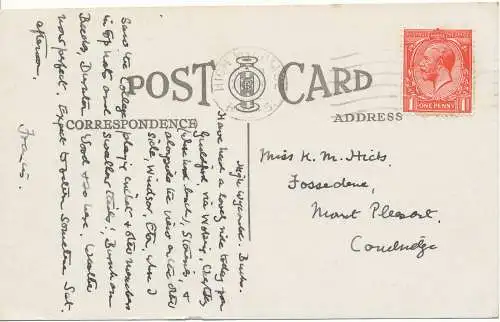 POST CARD
CORRESPONDENCE
ADDRESS
ONE PENNY
High Wycombe. Bucks.
Have had a lovely ride today from
Guildford, via Woking, Chertsey
(where had lunch), Staines, &
alongside the river on the other
side, Windsor, Eton, where I
saw the College playing cricket & other wonders
in top hats and swallow tails!, Burnham
Beeches, Dunston Wood & so here. Weather
was perfect. Expect to return sometime Sat.
afternoon.
Francis.
Miss K. M. Hicks,
Fossedene,
Mount Pleasant,
Cambridge